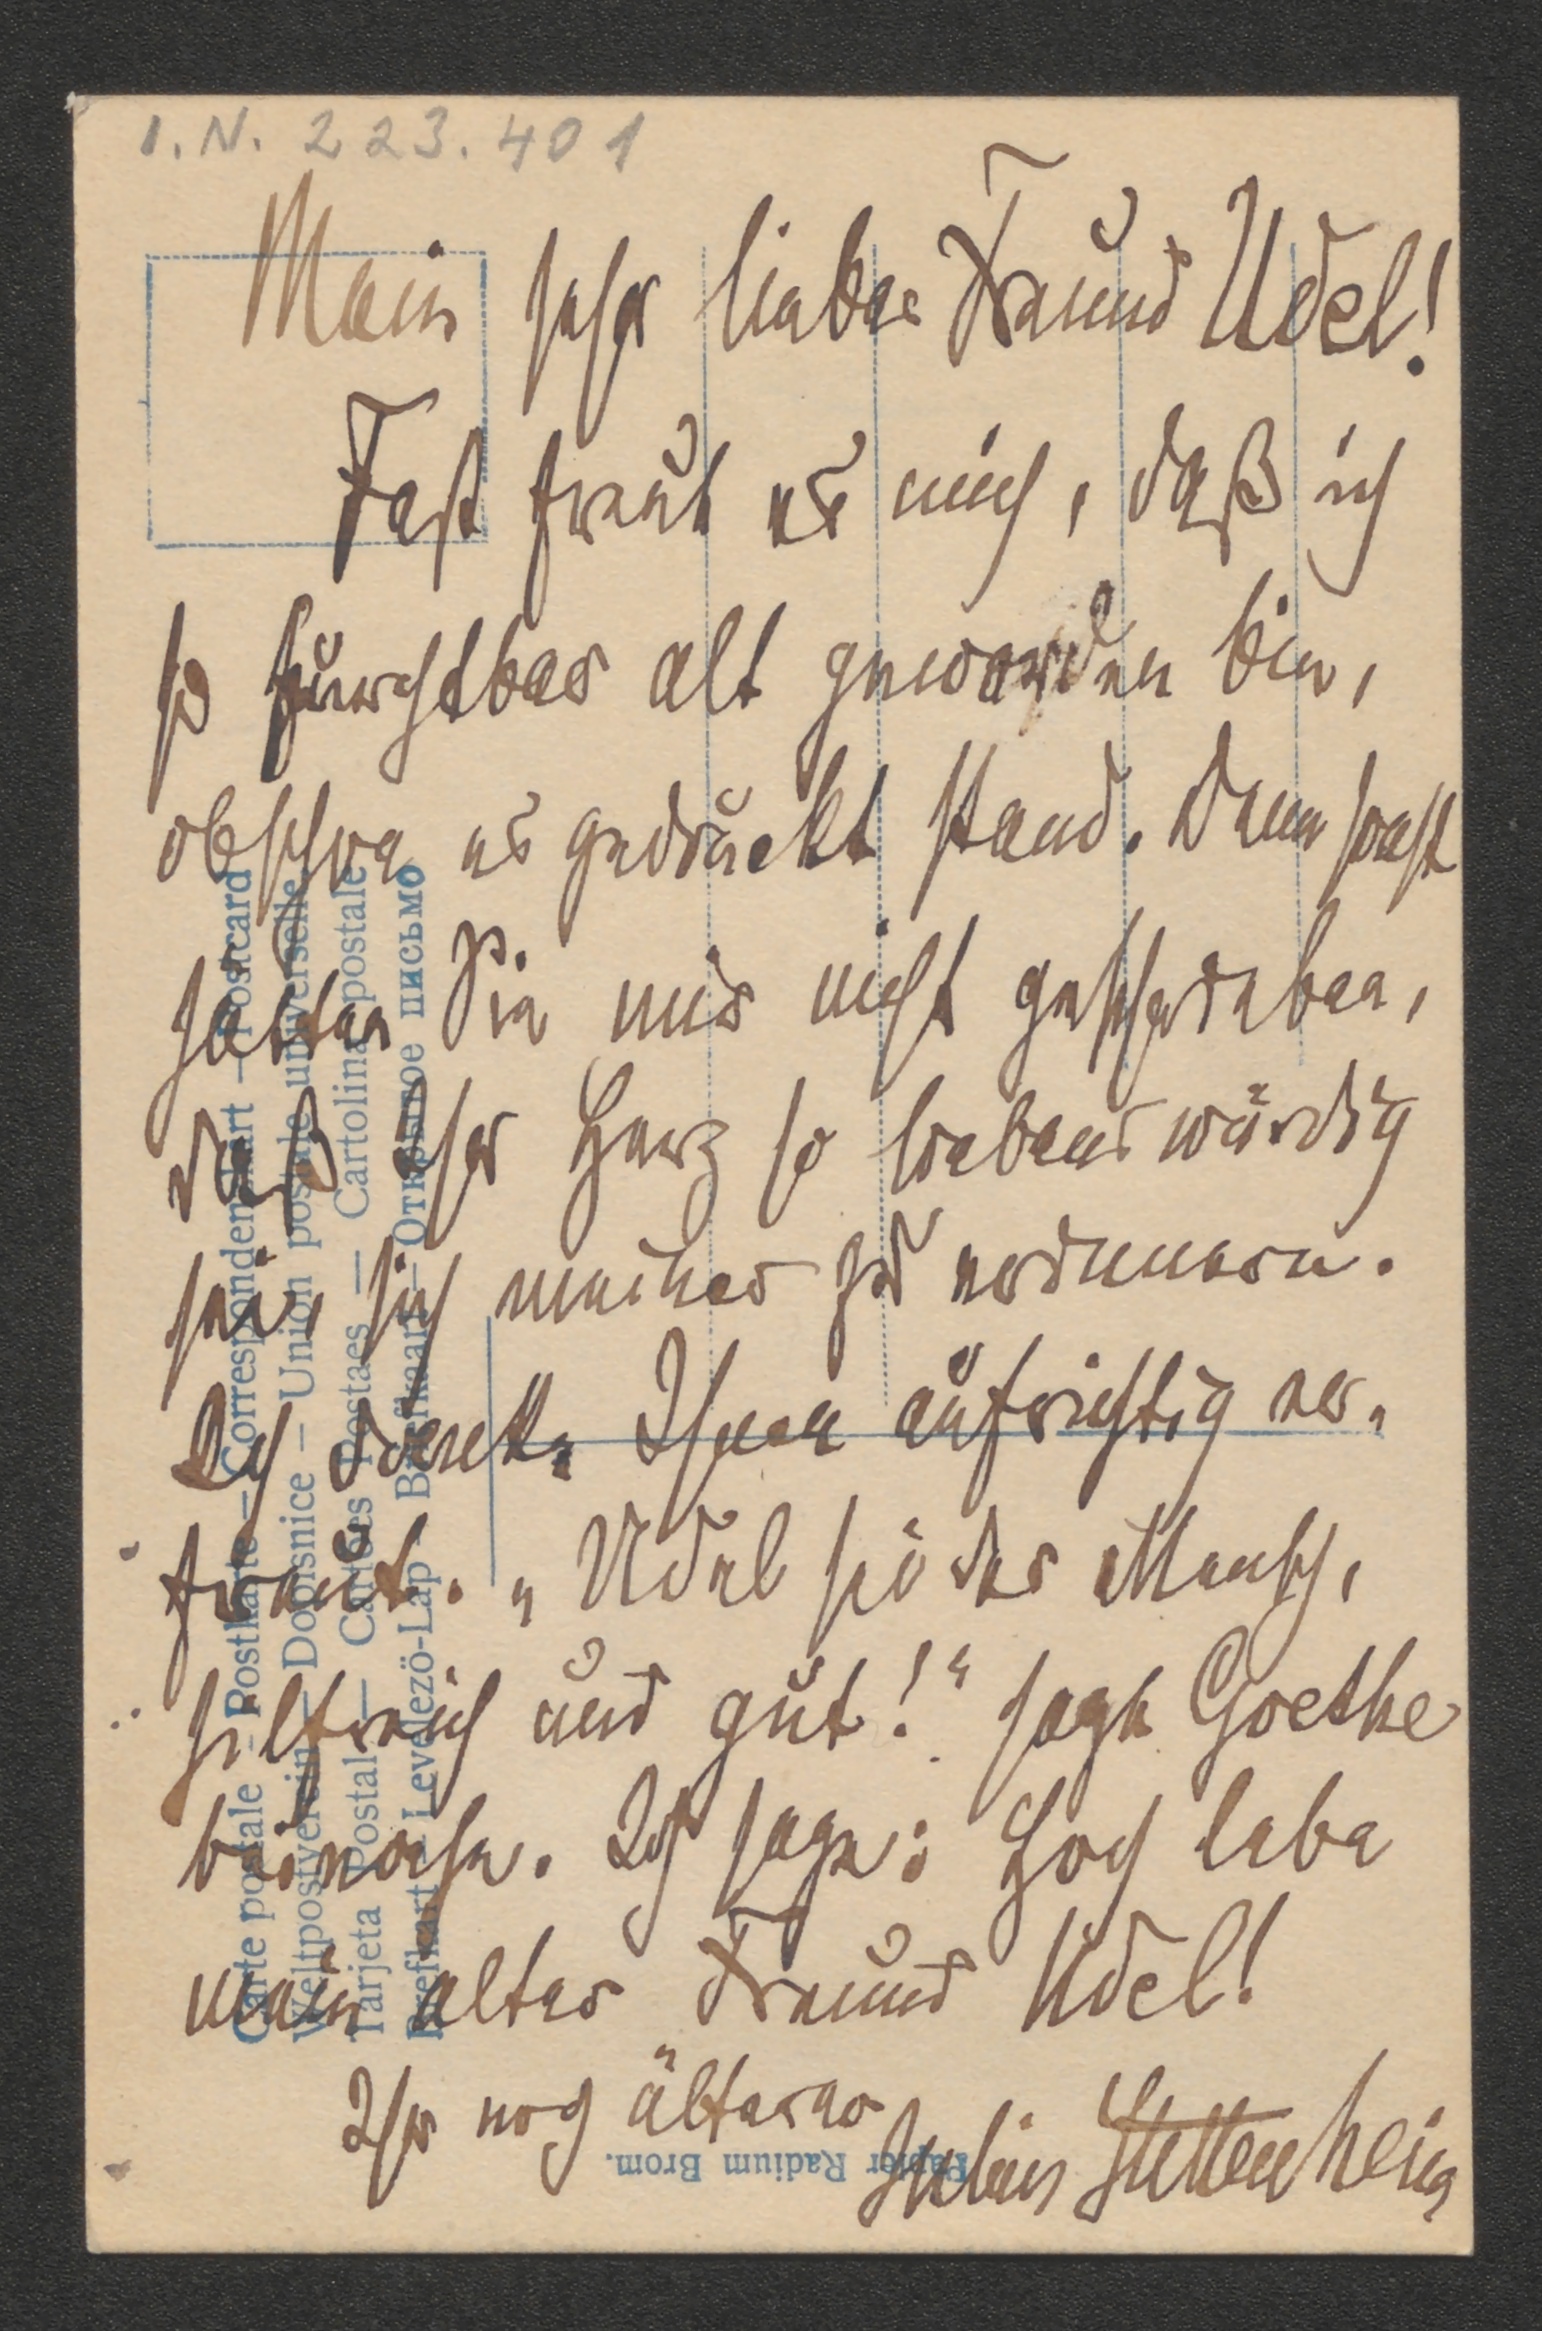 I.N. 223.401
Mein sehr lieber Freund Udel!
Fast freut es mich, daß ich
so furchtbar alt geworden bin,
obschon es gedruckt stand. Denn sonst
hätten Sie mir nicht geschrieben,
daß Ihr Herz so liebenswürdig
sei, sich meiner zu erinnern.
Ich danke Ihnen aufrichtig er-
freut. „Udel sei der Mensch,
hilfreich und gut!“ sagt Goethe
beinahe. Ich sage: Hoch lebe
mein alter Freund Udel!
Ihr noch älterer
Julius Stettenheim
Carte postale – Postkarte – Correspondenzkart – Postcard
Weltpostverein – Dopisnice – Union postale universelle
Tarjeta Postal — Cartões Postaes — Cartolina postale
Brefkart – Levelező-Lap – Briefkaart – Открытое письмо
Papier Radium Brom.